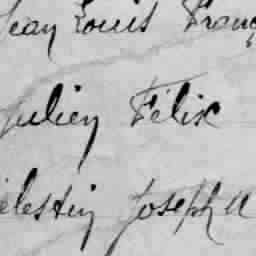 Jean Louis Franç
Julien Félix
élestin Joseph A